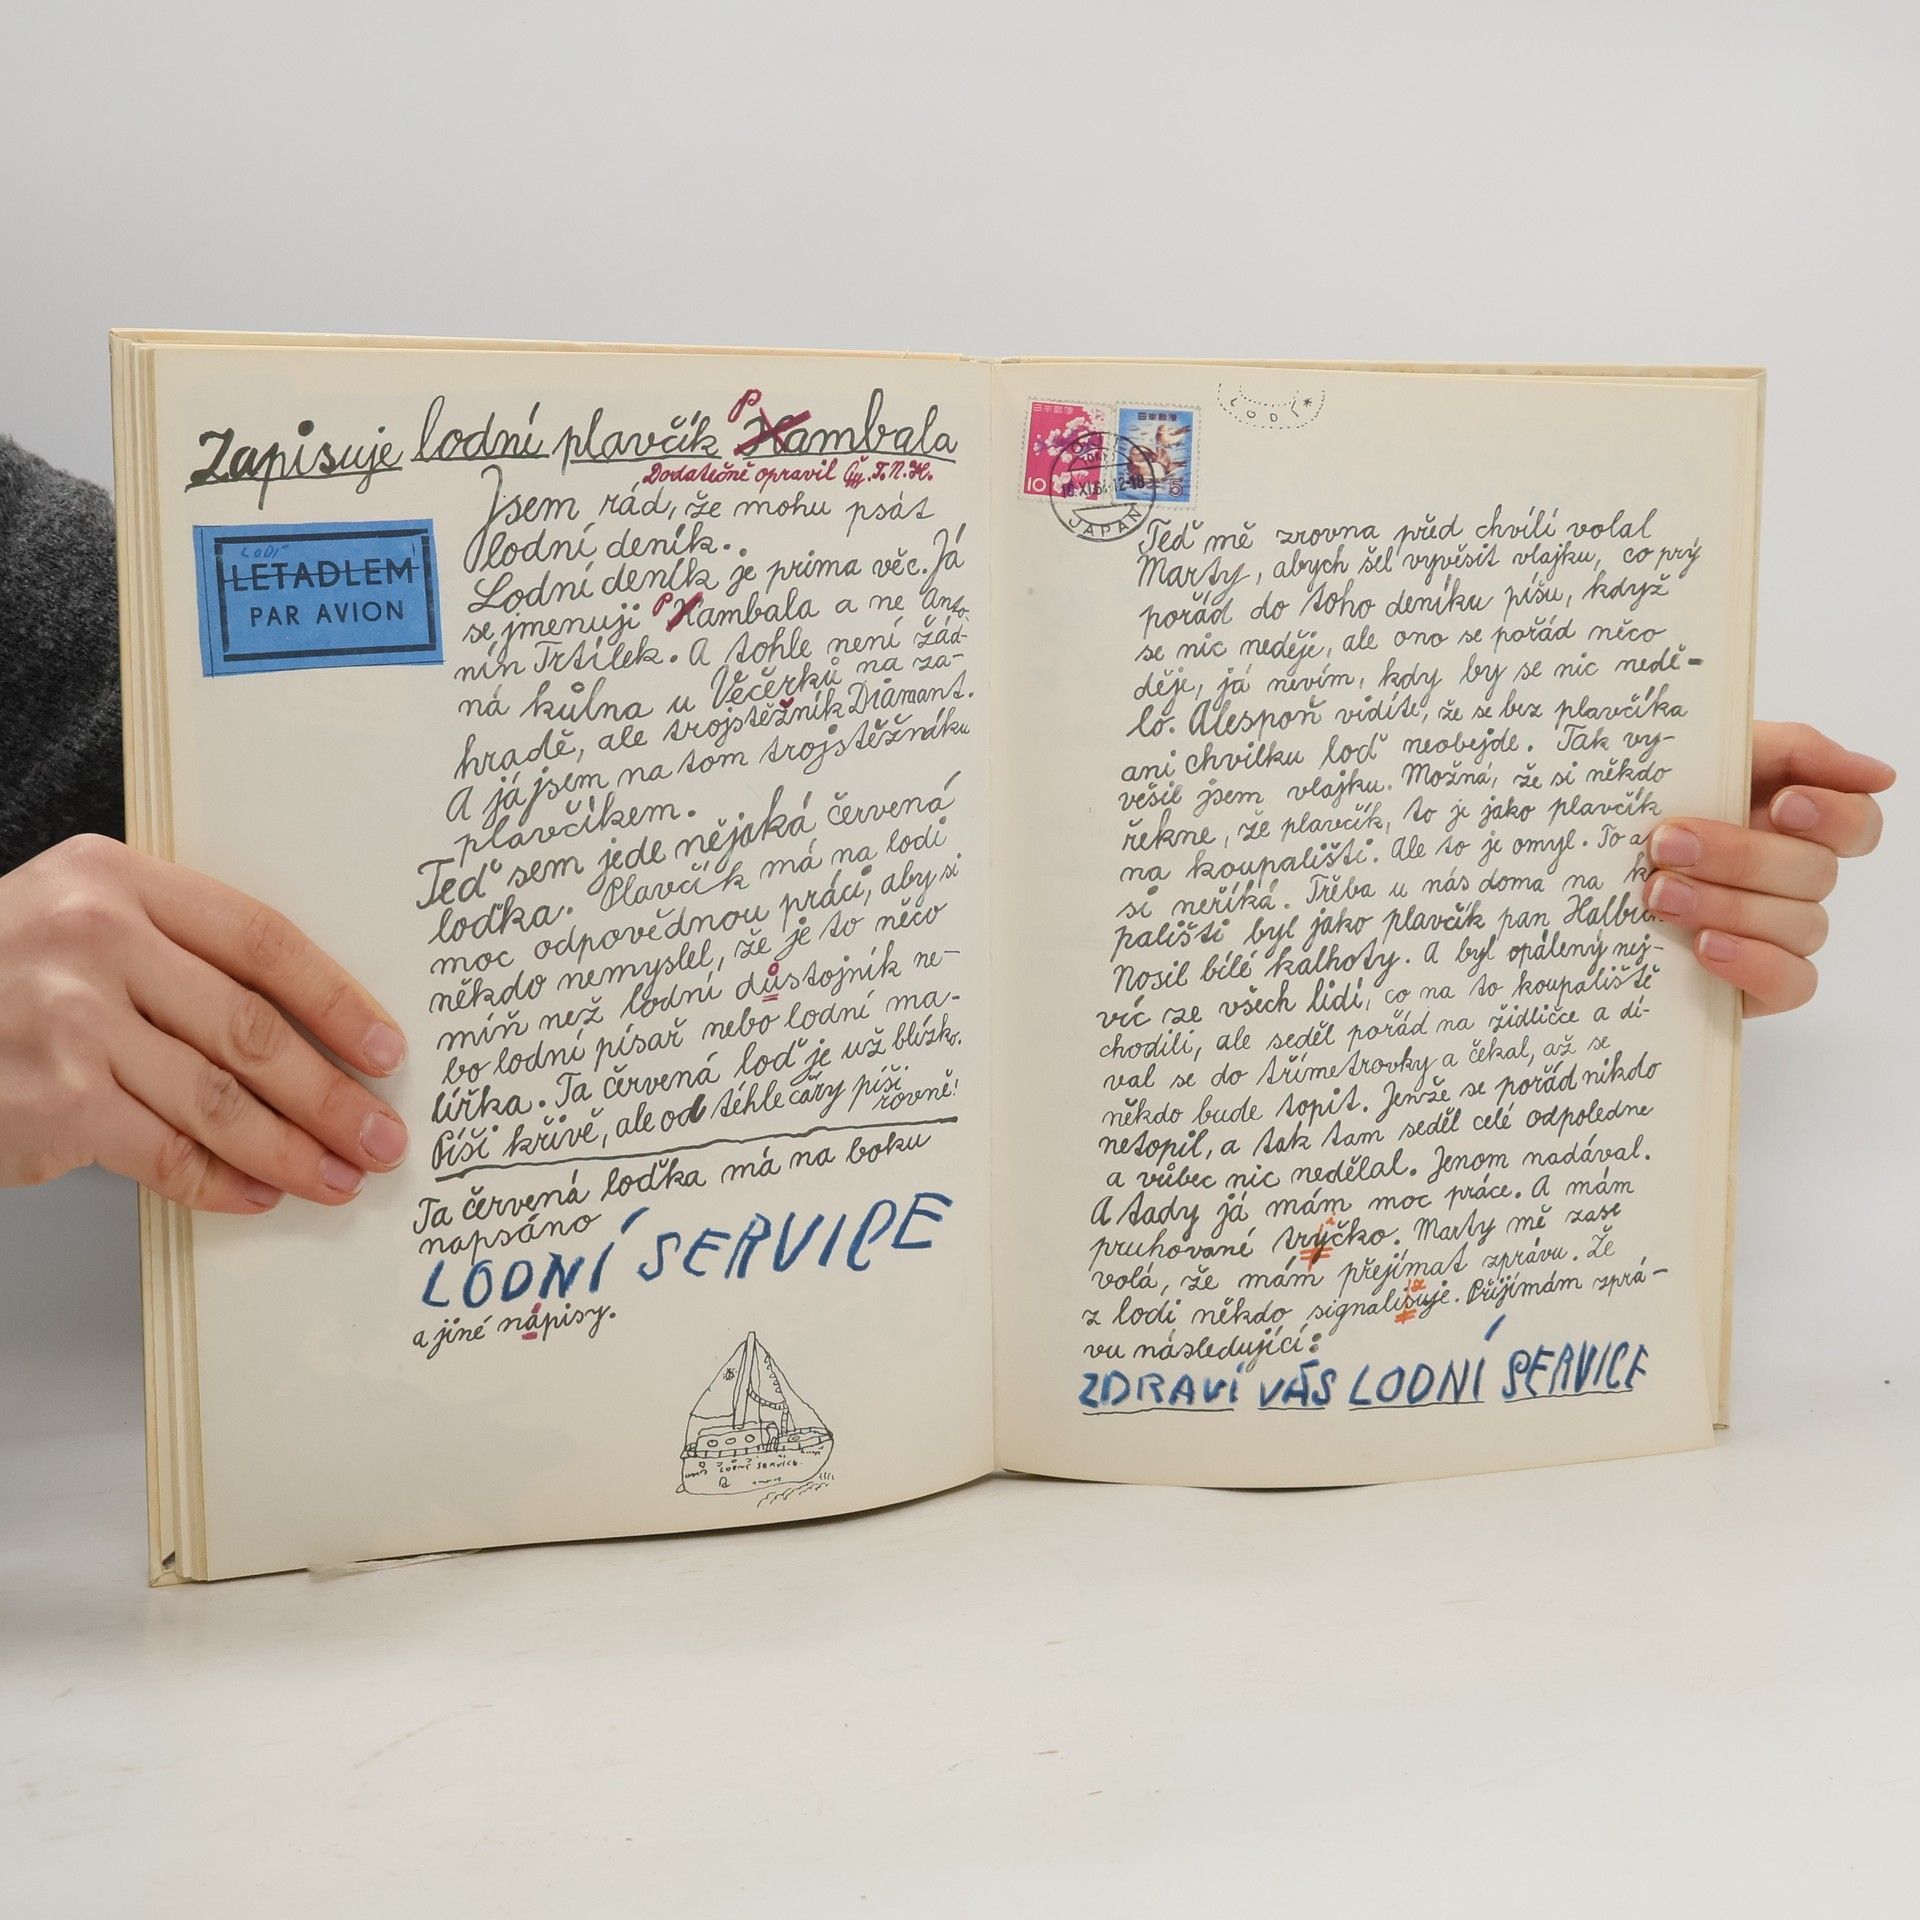 Zapisuje lodní plavčík P Kambala
Dodatečně opravil Čy. T. N. H.
LODÍ
LETADLEM
PAR AVION
Jsem rád, že mohu psát
lodní deník.
Lodní deník je prima věc. Já
se jmenuji P Kambala a ne Anto-
nín Trtílek. A tohle není žád-
ná kůlna u Věčěrků na za-
hradě, ale trojstěžník Diamant.
A já jsem na tom trojstěžníku
plavčíkem.
Teď sem jede nějaká červená
loďka. Plavčík má na lodi
moc odpovědnou práci, aby si
někdo nemyslel, že je to něco
míň než lodní důstojník ne-
bo lodní písař nebo lodní ma-
lířka. Ta červená loď je už blízko.
Píši křivě, ale od téhle čáry píši
rovně!
Ta červená loďka má na boku
napsáno
LODNÍ SERVICE
a jiné nápisy.
LODNÍ SERVICE
日本郵便
10
日本郵便
5
JAPAN
LODÍ *
Teď mě zrovna před chvílí volal
Marty, abych šel vyvěsit vlajku, co prý
pořád do toho deníku píšu, když
se nic neděje, ale ono se pořád něco
děje, já nevím, kdy by se nic nedě-
lo. Alespoň vidíte, že se bez plavčíka
ani chvilku loď neobejde. Tak vy-
věsil jsem vlajku. Možná, že si někdo
řekne, že plavčík, to je jako plavčík
na koupališti. Ale to je omyl. To a
si neříká. Třeba u nás doma na k
pališti byl jako plavčík pan
Nosil bílé kalhoty. A byl opálený nej-
víc ze všech lidí, co na to koupaliště
chodili, ale seděl pořád na židličce a dí-
val se do třímetrovky a čekal, až se
někdo bude topit. Jenže se pořád nikdo
netopil, a tak tam seděl celé odpoledne
a vůbec nic nedělal. Jenom nadával.
A tady já mám moc práce. A mám
pruhované tryčko. Marty mě zase
volá, že mám přejímat zprávu. Že
z lodi někdo signalisuje. Přijímám zprá-
vu následující:
ZDRAVÍ VÁS LODNÍ SERVICE